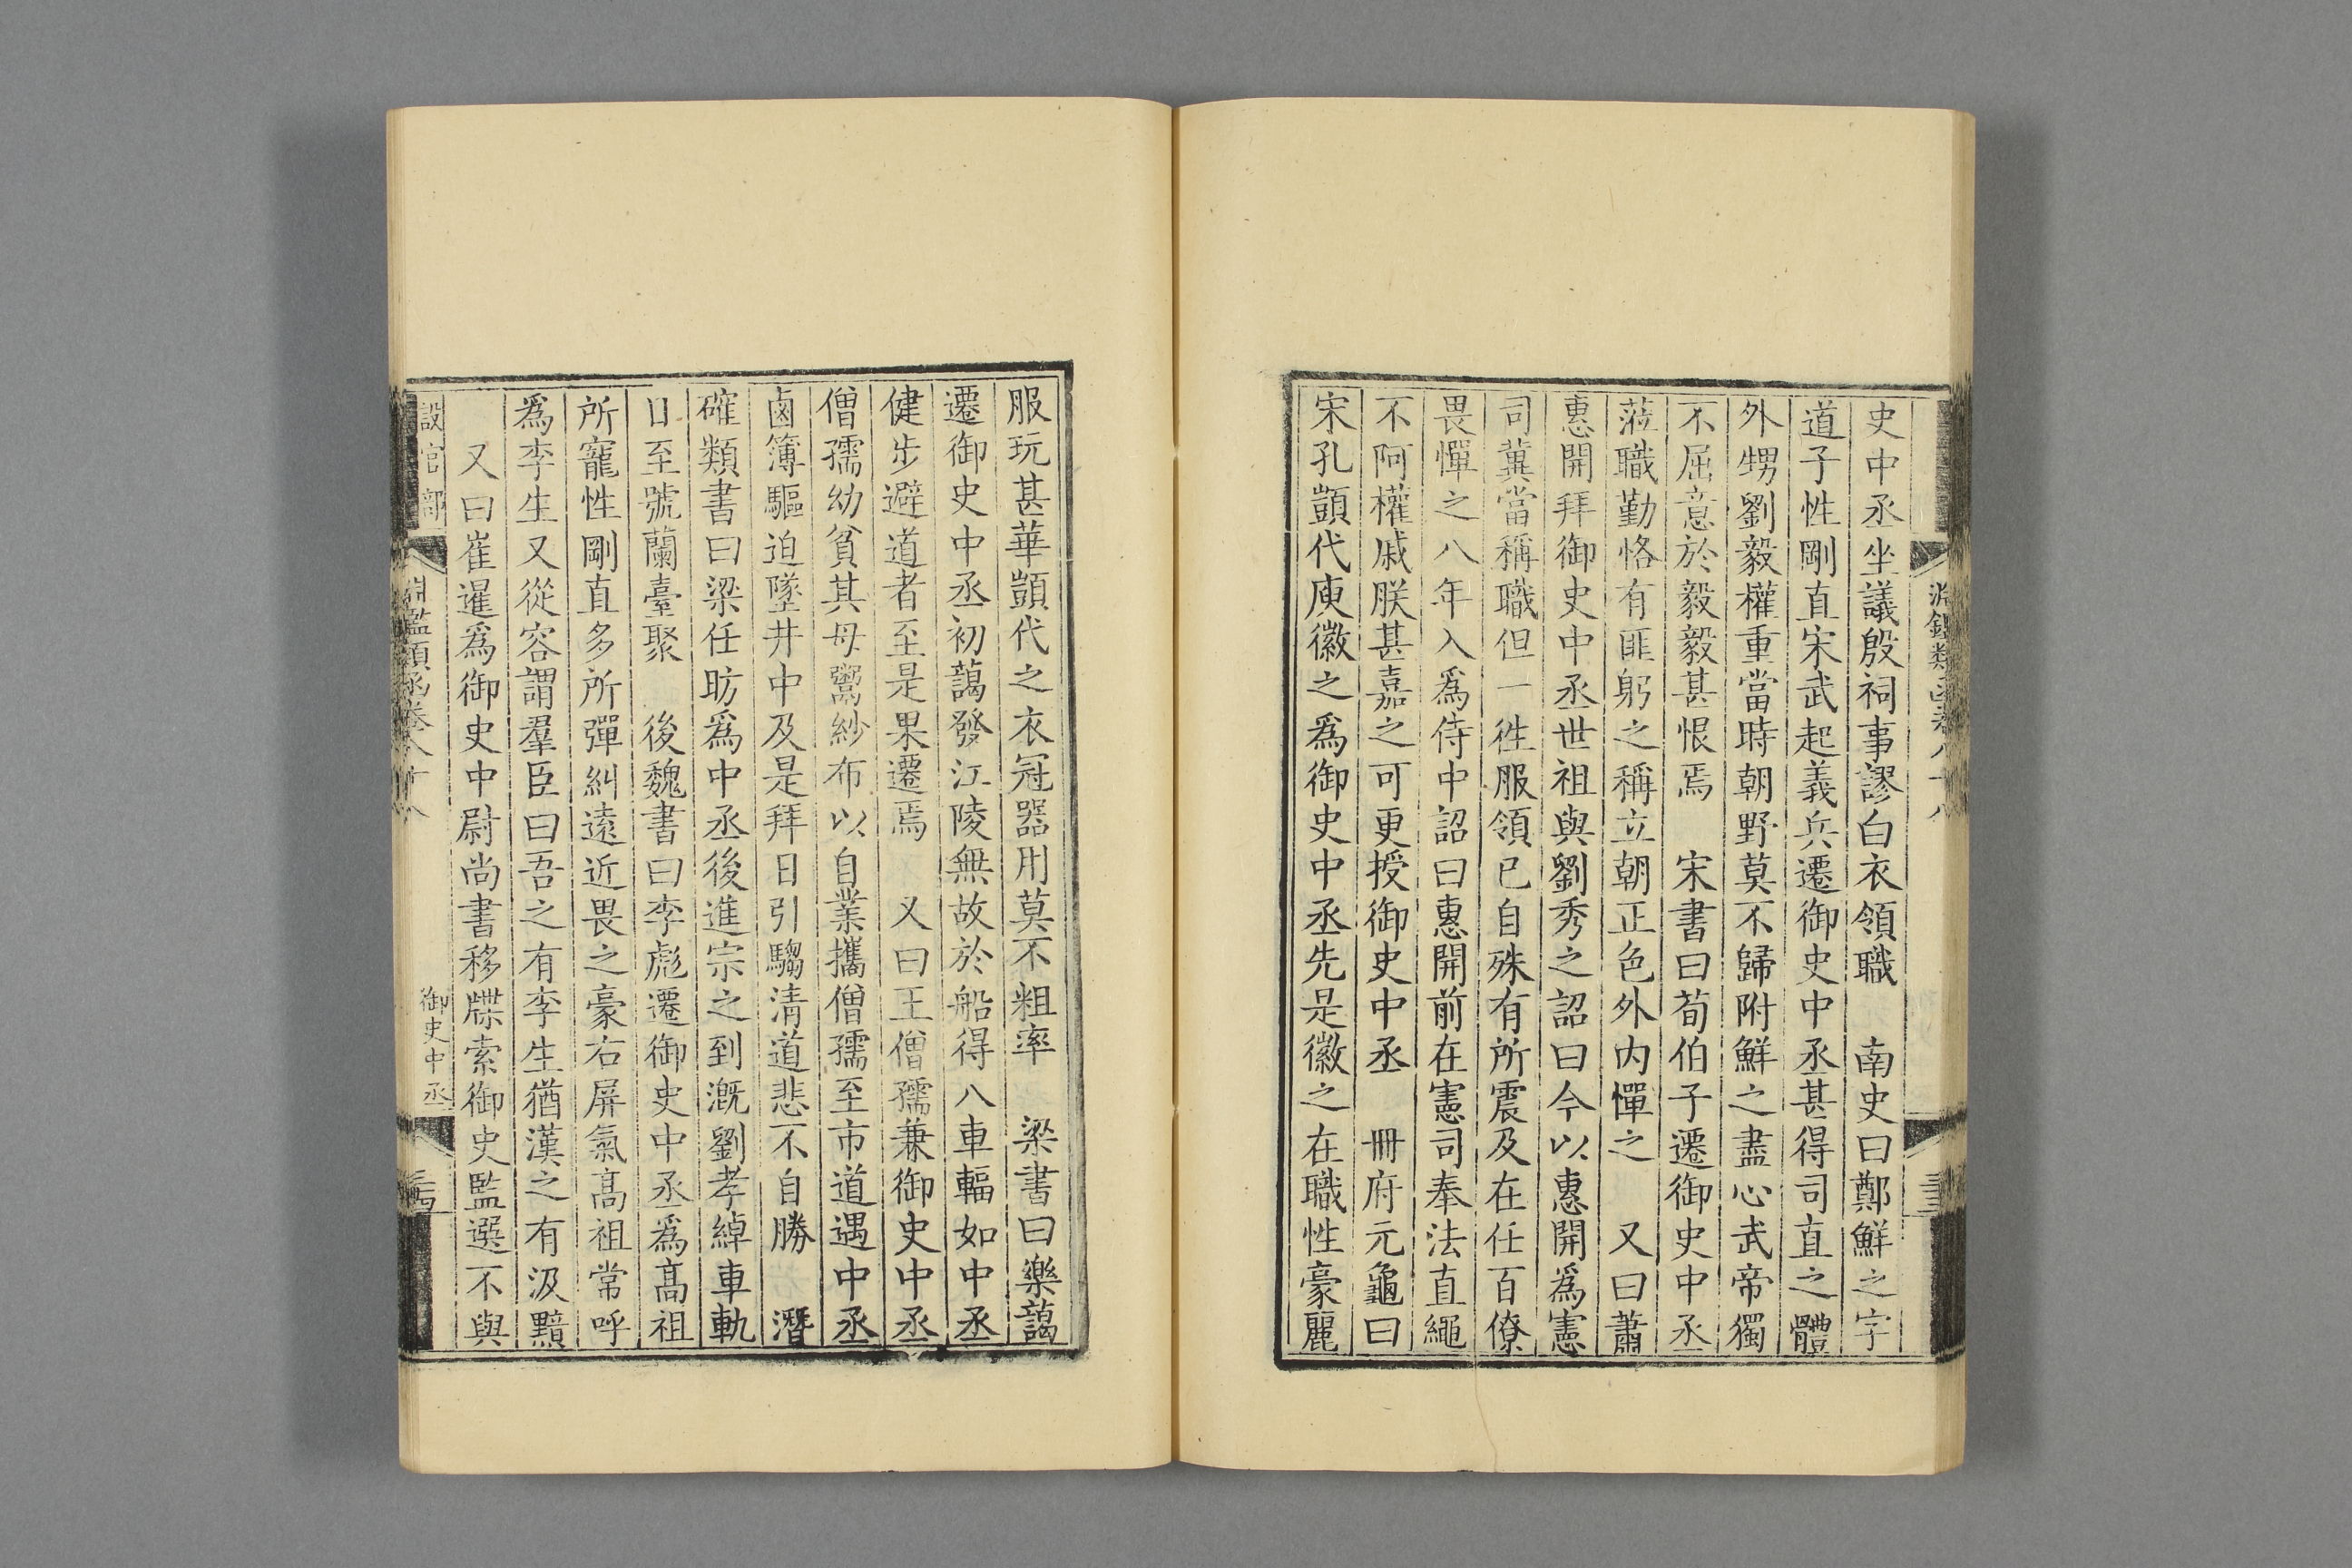 淵鑑類函卷八十八
史中丞坐議殷祠事謬白衣領職　南史曰鄭鮮之字
道子性剛直宋武起義兵遷御史中丞甚得司直之體
外甥劉毅權重當時朝野莫不歸附鮮之盡心武帝獨
不屈意於毅毅甚恨焉　宋書曰荀伯子遷御史中丞
蒞職勤恪有匪躬之稱立朝正色外內憚之　又曰蕭
惠開拜御史中丞世祖與劉秀之詔曰今以惠開爲憲
司冀當稱職但一往服領已自殊有所震及在任百僚
畏憚之八年入爲侍中詔曰惠開前在憲司奉法直繩
不阿權戚朕甚嘉之可更授御史中丞　冊府元龜曰
宋孔顗代庾徽之爲御史中丞先是徽之在職性豪麗
服玩甚華顗代之衣冠器用莫不粗率　梁書曰樂藹
遷御史中丞初藹發江陵無故於船得八車輻如中丞
健步避道者至是果遷焉　又曰王僧孺兼御史中丞
僧孺幼貧其母鬻紗布以自業攜僧孺至市道遇中丞
鹵簿驅迫墜井中及是拜日引騶清道悲不自勝　潛
確類書曰梁任昉爲中丞後進宗之到漑劉孝綽車軌
日至號蘭臺聚　後魏書曰李彪遷御史中丞爲高祖
所寵性剛直多所彈糾遠近畏之豪右屏氣高祖常呼
爲李生又從容謂羣臣曰吾之有李生猶漢之有汲黯
又曰崔暹爲御史中尉尚書移牒索御史監選不與
設官部
淵鑑類函卷八十八
御史中丞